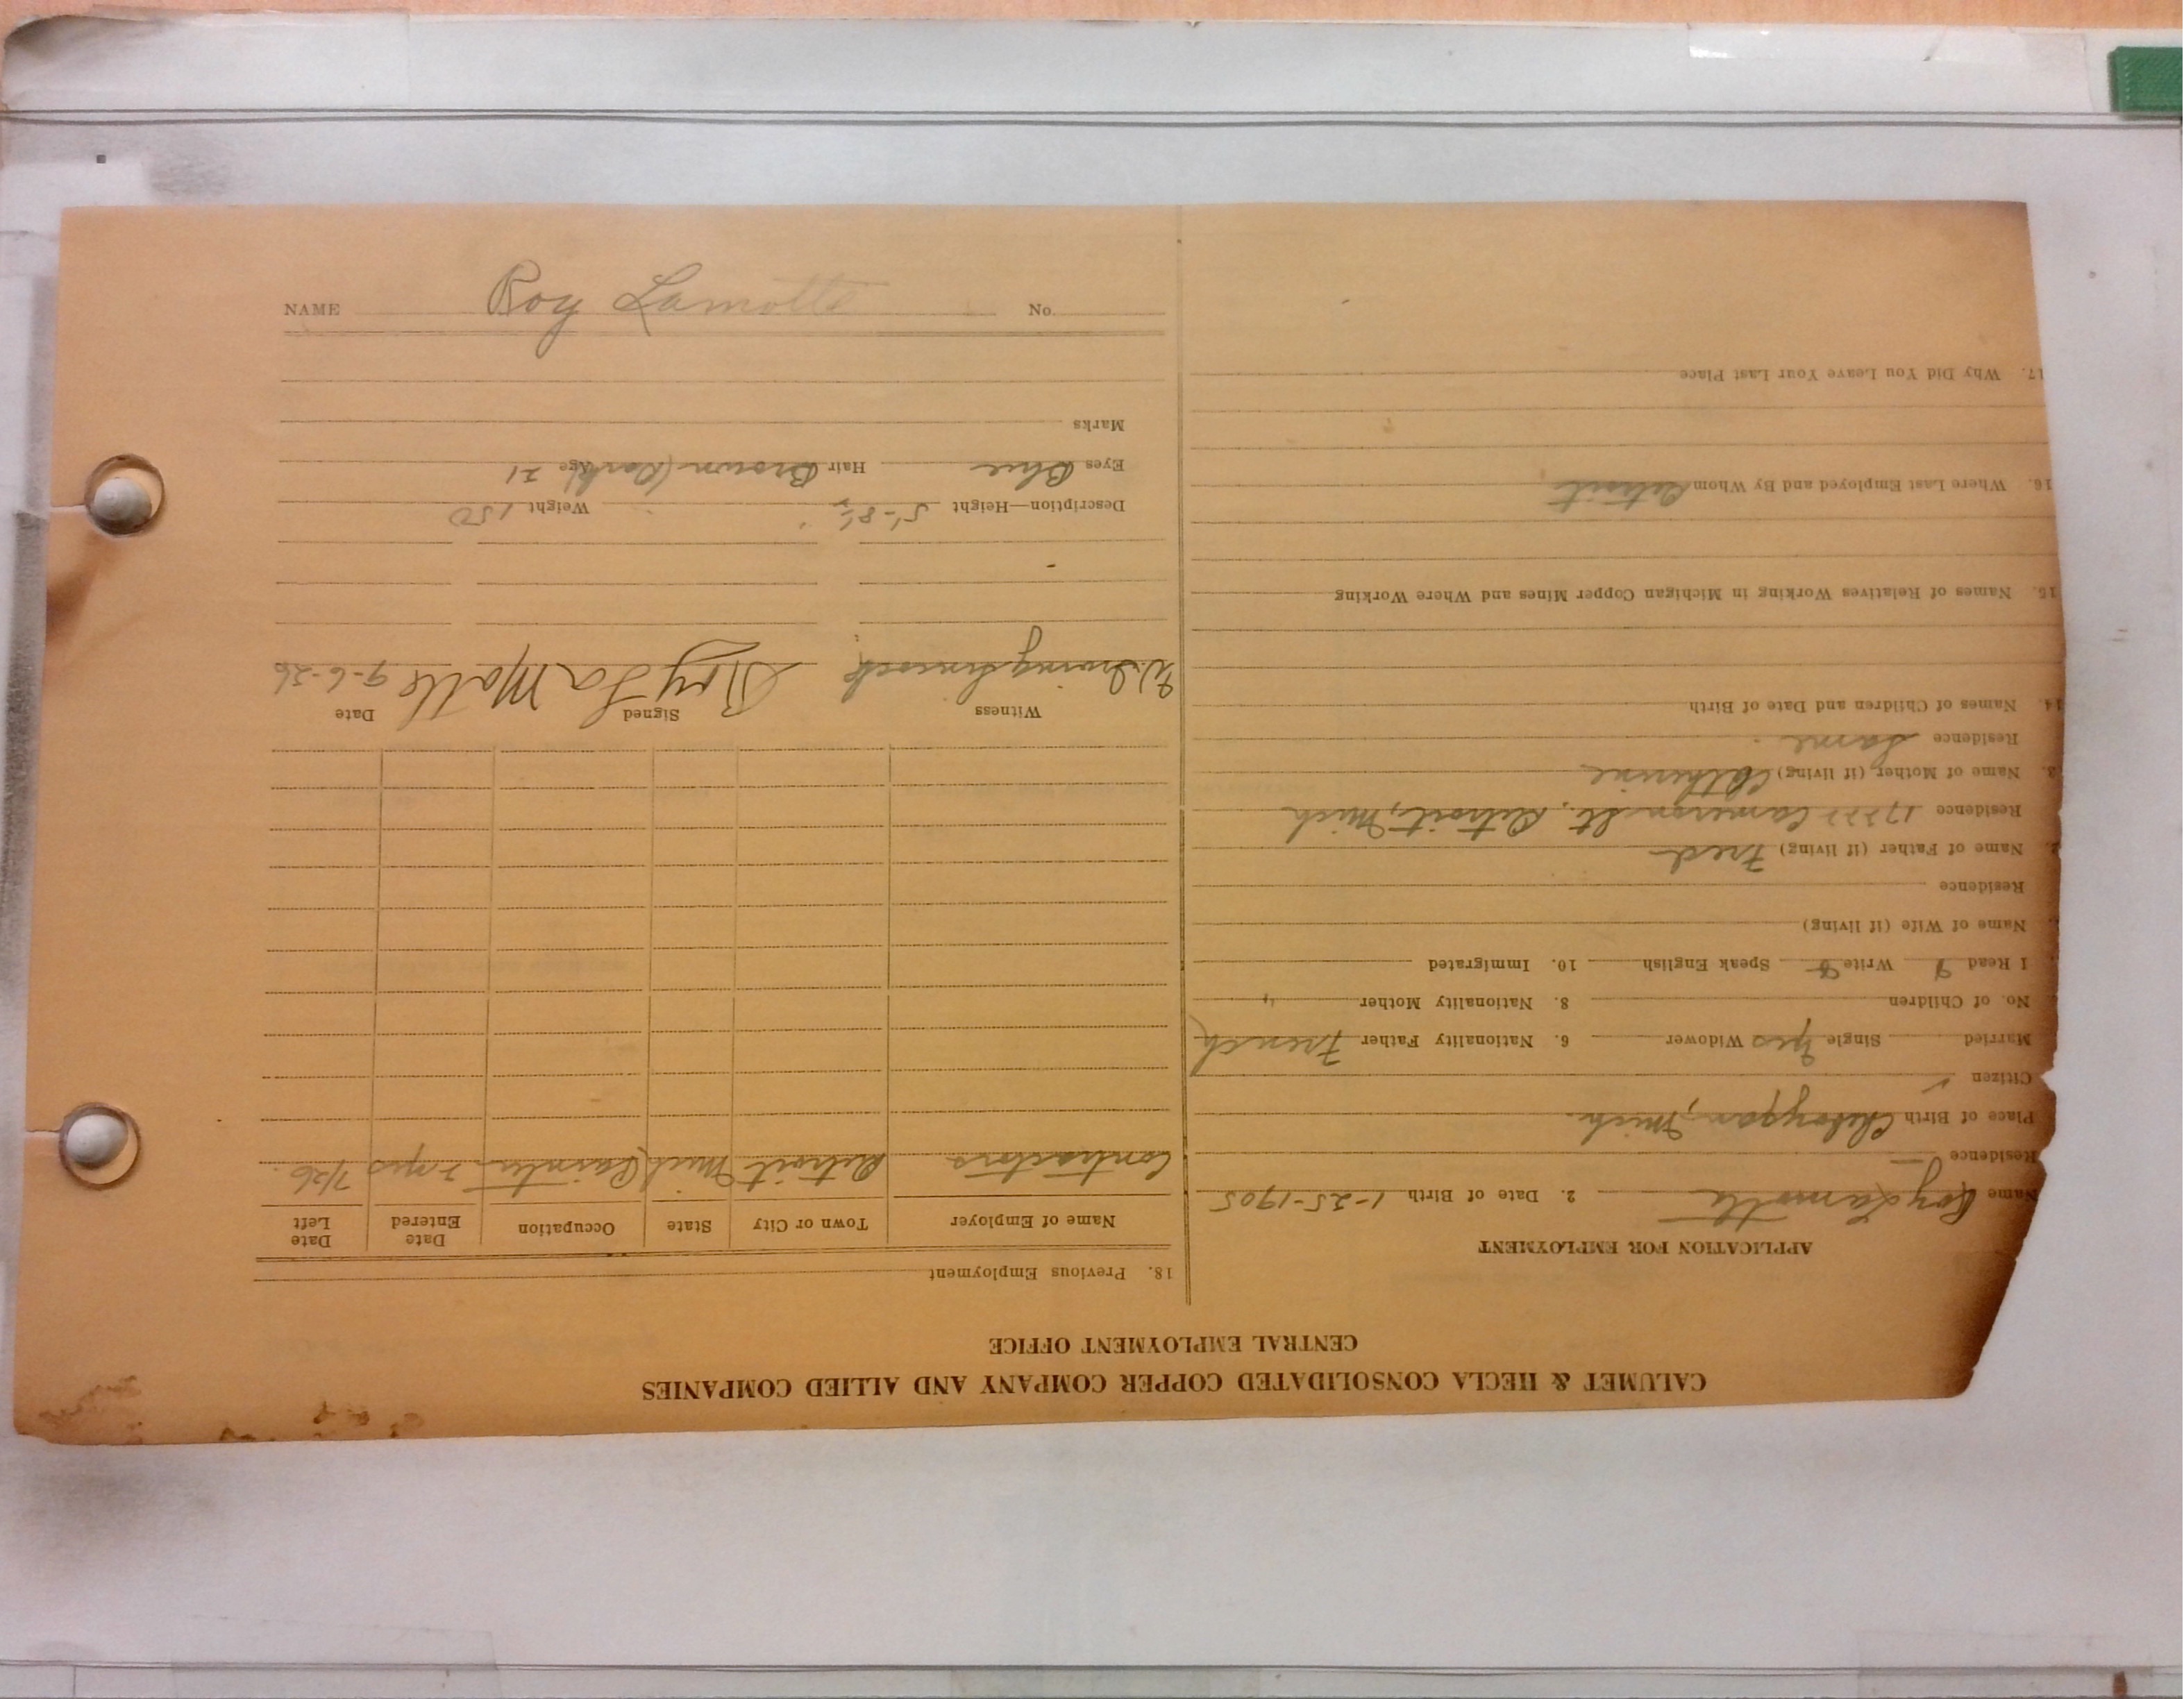 CALUMET & HECLA CONSOLIDATED COPPER COMPANY AND ALLIED COMPANIES
CENTRAL EMPLOYMENT OFFICE
APPLICATION FOR EMPLOYMENT
Name Roy Lamotte 2. Date of Birth 1-25-1905
Residence
Place of Birth Cheboygan, Mich.
Citizen ✓
Married Single yes Widower 6. Nationality Father French
No. of Children 8. Nationality Mother "
I Read Write Speak English 10. Immigrated
Name of Wife (if living)
Residence
2. Name of Father (if living) Fred
Residence 17222 Cameron St., Detroit, Mich
3. Name of Mother (if living) Catherine
Residence Same
14. Names of Children and Date of Birth
15. Names of Relatives Working in Michigan Copper Mines and Where Working
16. Where Last Employed and By Whom Detroit
17. Why Did You Leave Your Last Place
18. Previous Employment
Name of Employer Town or City State Occupation Date Entered Date Left
Contractors Detroit Mich Painter 2 yrs 7/26.
Witness Signed Date
Roy La Motte 9-6-26
Description—Height 5'-8½" Weight 150
Eyes Blue Hair Brown (Dark) Age 21
Marks
NAME Roy Lamotte No.